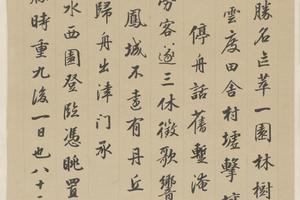 勝名亡萃一園林樹
雲度田舍村墟擊
停舟話舊暫淹
客遂三休微歌響
鳳城不遠有丹丘
歸舟出津門承
水西園登臨憑眺置
時重九後一日也八十